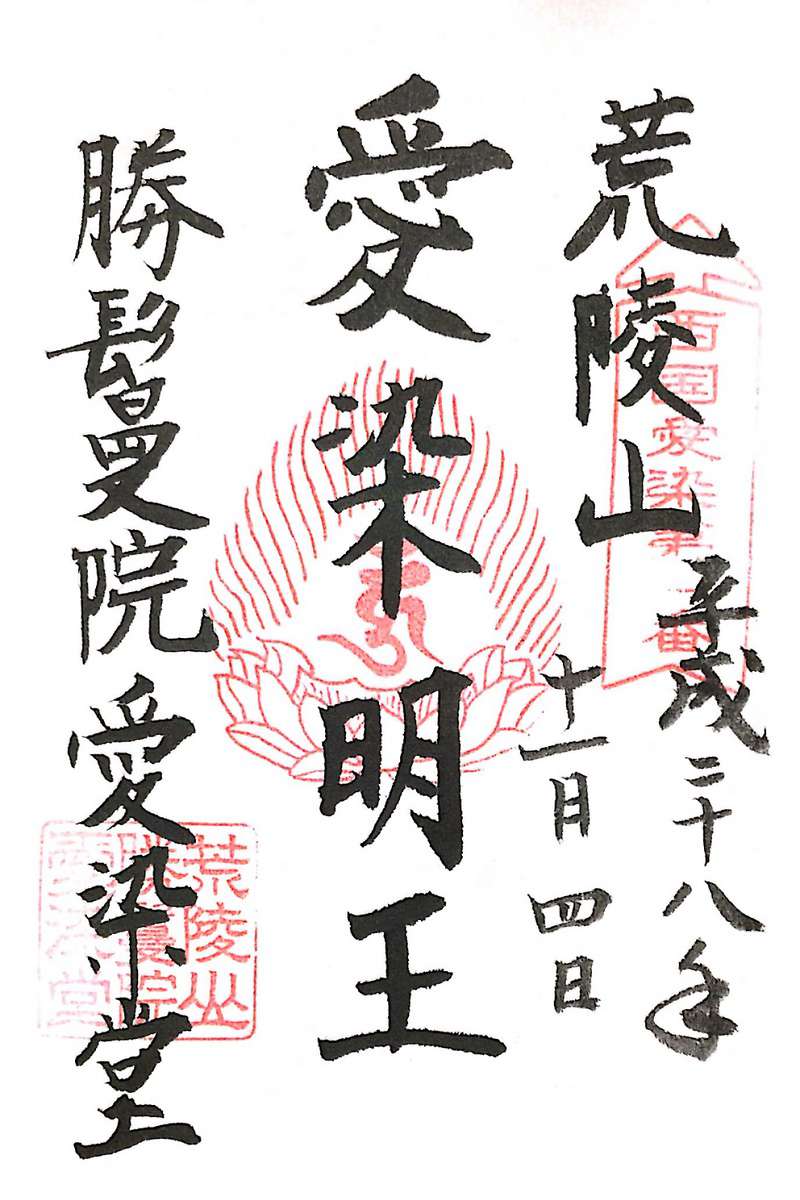 荒陵山
平成二十八年
十一月四日
愛染明王
勝鬘院愛染堂
西国愛染第一番
荒陵山
勝鬘院
愛染堂